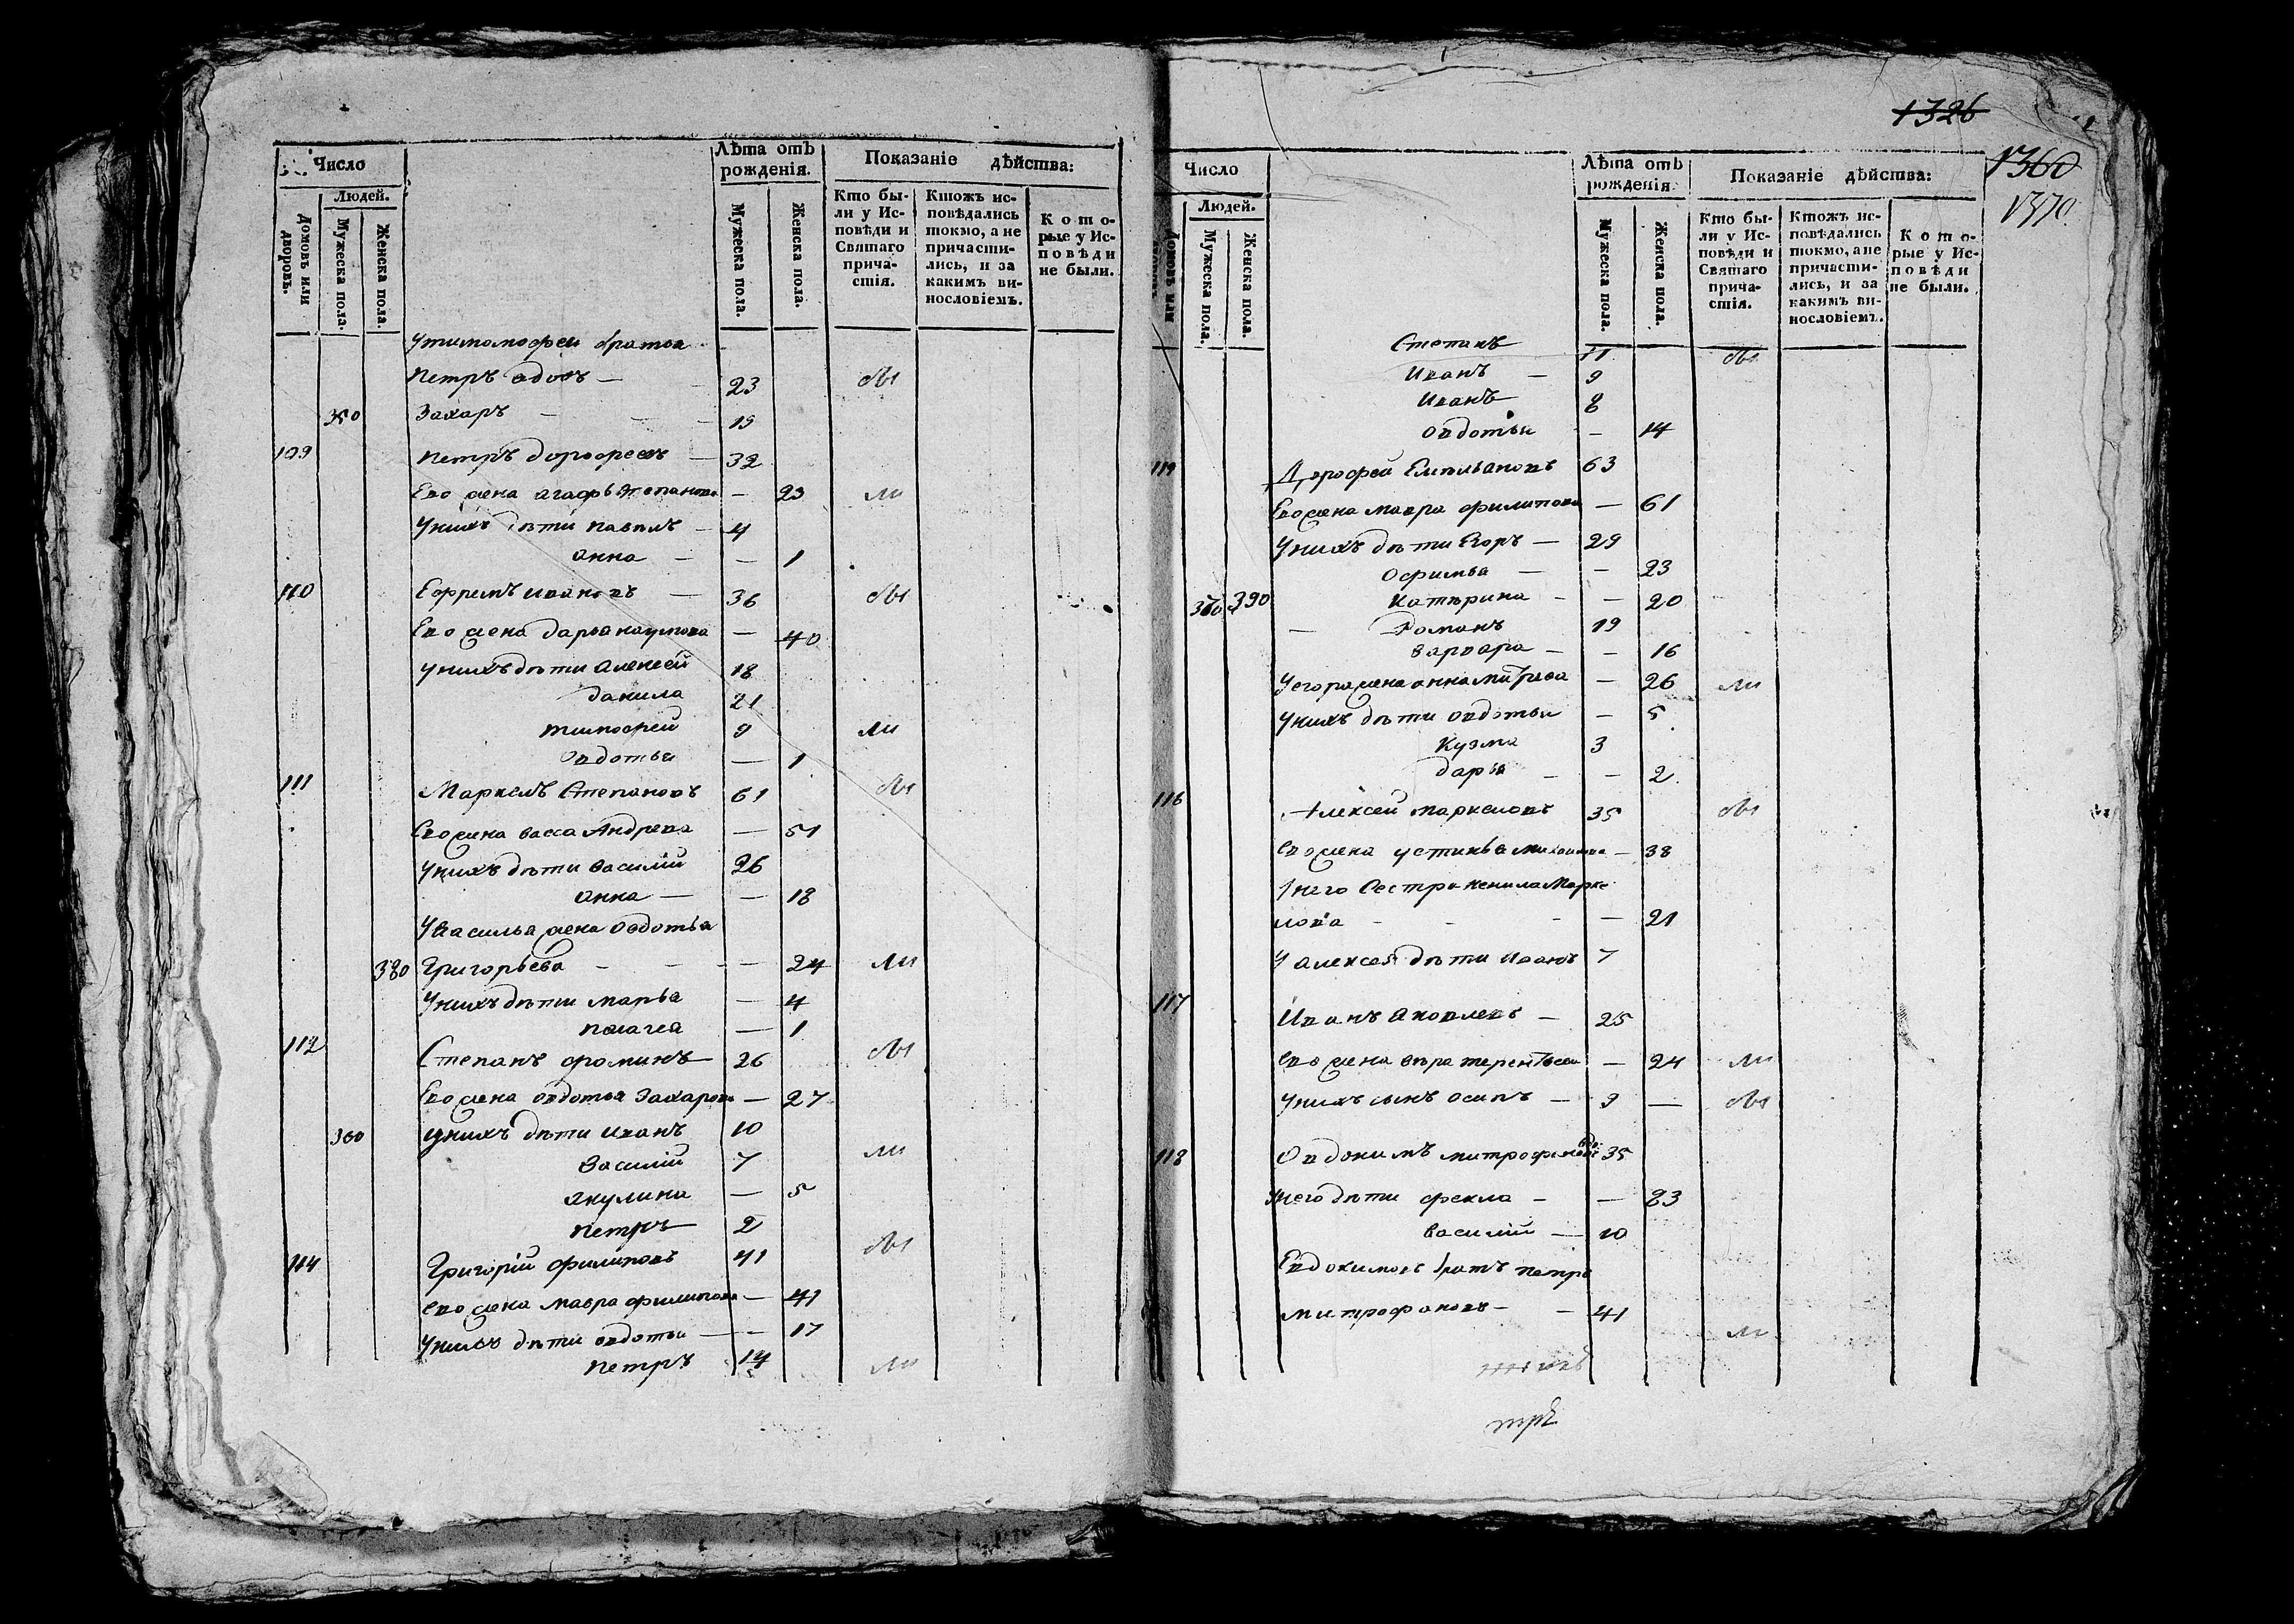 Число
Людей.
Домовъ или дворовъ.
Мужеска пола.
Женска пола.
Лѣта отъ рожденія.
Мужеска пола.
Женска пола.
Показаніе дѣйства:
Кто бы-
ли у Ис-
повѣди и
Святаго
прича-
стія.
Ктожъ ис-
повѣдались
токмо, а не
причасти-
лись, и за
какимъ ви-
нословіемъ.
Кото-
рые у Ис-
повѣди
не были.
У тимофеи братья
Петръ вдовъ — 23
350 Захаръ — 19
109 Петръ дорофеевъ — 32
Его жена агафья степанова — 23 ли
У нихъ дѣти павелъ — 4
анна — — 1
110 Ефремъ ивановъ — 36
Его жена дарья наумова — 40
У нихъ дѣти алексей 18
данила 21
тимофей 9 ли
овдотья — 1
111 Маркелъ Степановъ 61
Его жена васса Андрева — 51
У нихъ дѣти василий 26
анна — — 18
У василья жена овдотья
380 Григорьева — — — 24 ли
У нихъ дѣти марья — 4
пелагея — 1
112 Степанъ фоминъ 26
Его жена овдотья Захарова — 27
360 У нихъ дѣти иванъ 10
василий 7 ли
акулина — 5
петръ 2
114 Григорий филиповъ 41
Его жена мавра филипова — 41
У нихъ дѣти овдотья — — 17
петръ 14 ли
1326
1360
1370
Число
Людей.
Домовъ или
Мужеска пола.
Женска пола.
Лѣта отъ рожденія.
Мужеска пола.
Женска пола.
Показаніе дѣйства:
Кто бы-
ли у Ис-
повѣди и
Святаго
прича-
стія.
Ктожъ ис-
повѣдались
токмо, а не
причасти-
лись, и за
какимъ ви-
нословіемъ.
Кото-
рые у Ис-
повѣди
не были.
Степанъ 11
Иванъ — 9
Иванъ 8
овдотья — 14
Дорофей Емельановъ 63
Его жена мавра филипова — 61
У нихъ дѣти Егоръ — 29
офимья — — 23
390 Катерина — — 20
Романъ 19
варвара — — 16
У егора жена анна — 26 ли
У нихъ дѣти овдотья — 5
Кузма 3
дарья — — 2
116 Алексей маркеловъ 35
Его жена устинья — 38
У него Сестра Марке
лова — — — 21
У алексея дѣти Иванъ 7
117 Иванъ яковлевъ — 25
Его жена вера терентьева — 24 ли
У нихъ сынъ осипъ — 9 —
118 Овдокимъ митрофановъ 35
У него дѣти фекла — — 23
василий — 10
Евдокимовъ братъ петръ
митрофановъ — — 41
ли